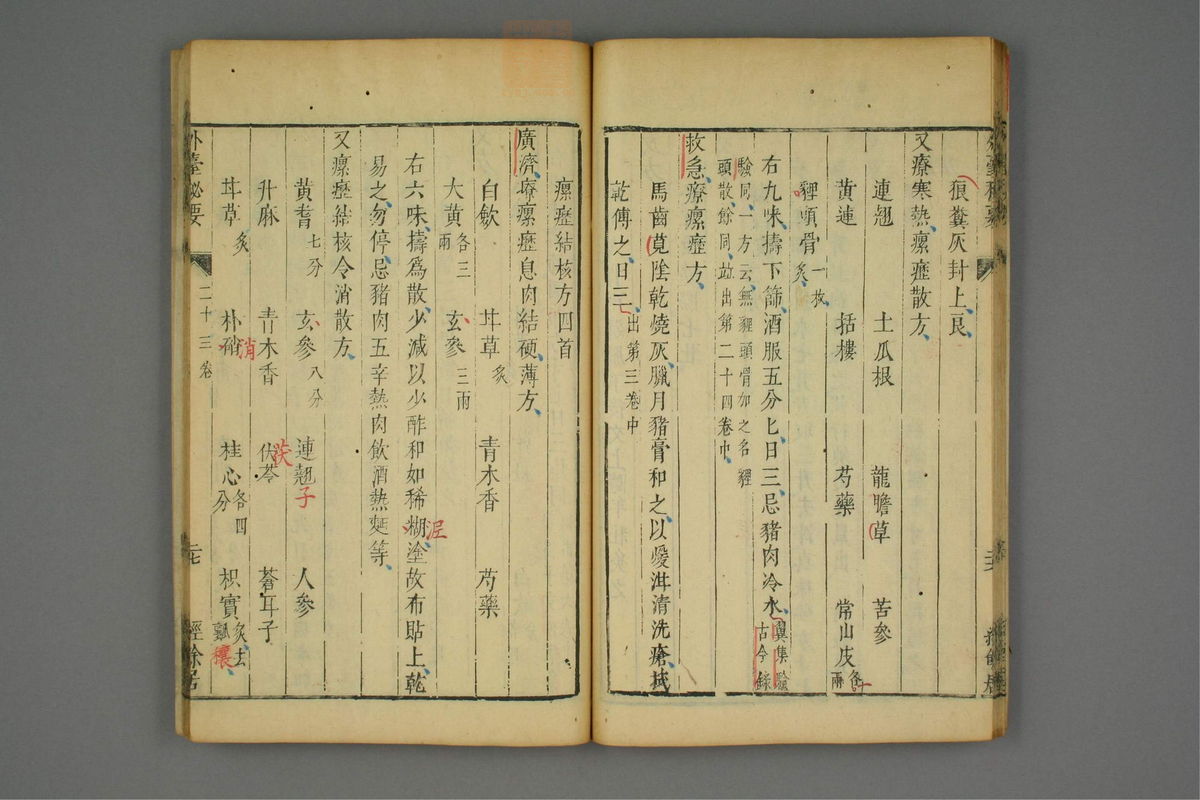 狼糞灰封上良
又療寒熱瘰癧散方
連翹 土瓜根 龍膽草 苦參
黃連 括樓 芍藥 常山皮各一兩
貍頭骨炙一枚
右九味擣下篩酒服五分匕日三忌豬肉冷水翼集驗古今錄
驗同一方云無貍頭骨加之名貍
頭散餘同並出第二十四卷中
救急療瘰癧方
馬齒莧陰乾燒灰臘月豬膏和之以暖泔清洗瘡拭
乾傅之日三出第三卷中
瘰癧結核方四首
廣濟療瘰癧息肉結硬薄方
白歛 甘草炙 青木香 芍藥
大黃各三兩 玄參三兩
右六味擣為散少減以少酢和如稀糊塗故布貼上乾
泥
易之勿停忌豬肉五辛熱肉飲酒熱麫等
又瘰癧結核令消散方
黃耆七分 玄參八分 連翹子 人參
升麻 青木香 伏苓 蒼耳子
茯
甘草炙 朴硝 桂心各四分 枳實炙去瓤
消 穰
外臺秘要 二十三卷 二七 經餘居